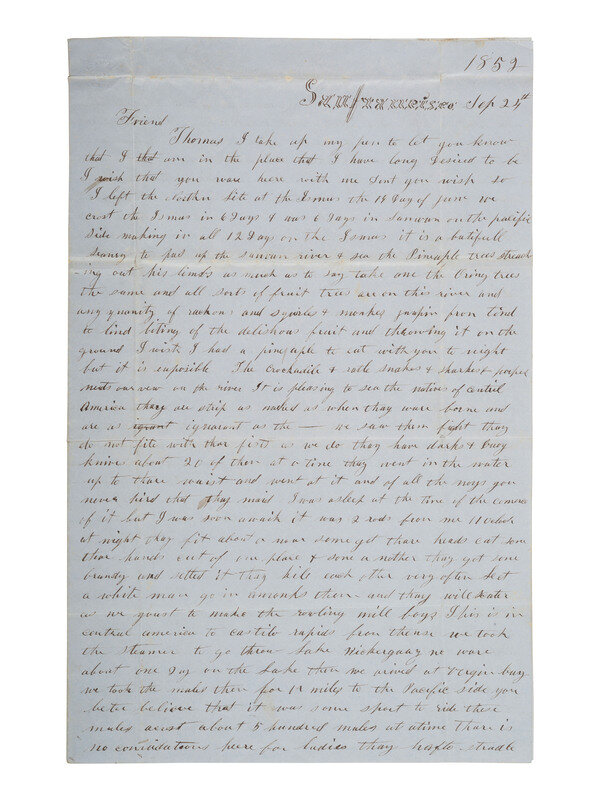 1852
Sanfrancisco Sep 25th
Friend
Thomas I take up my pen to let you know
that I that am in the place that I have long desired to be
I wish that you ware here with me dont you wish so
I left the eastern side at the Ismus the 19 day of june we
crost the Ismus in 6 days & was 6 days in sanwan on the pacific
side making in all 12 days on the Ismus it is a butifull
senery to pass up the sanwan river & sea the Pineaple trees streach
ing out his limbs as much as to say take one the Oring trees
the same and all sorts of fruit trees are on this river and
any quanity of rackons and squirls & monkes jumpin from limb
to limb biting of the delishous fruit and throwing it on the
ground I wish I had a pineaple to eat with you to night
but it is imposible The Crockadile & rattle snakes & sharkes &
our vew on the river It is pleasing to sea the natives of central
America thay are strip as naked as when thay ware borne and
are as ignrant ignarant as the — we saw them fight thay
do not fite with thar fist as we do thay have darks & buoy
knives about 20 of them at a time thay went in the water
up to thare waist and went at it and of all the noys you
never hird that thay maid I was asleep at the time of the comence
of it but I was soon awaik it was 2 rods from me 11 oclock
at night thay fit about a nour some got thare heads cut some
thare hands cut of one place & some a nother thay got some
brandy and setled it thay kill each other very often let
a white man go in amonks them and thay will scater
as we youst to make the rowling mill boys This is in
central america to castilo rapids from thense we took
the steamer to go throu Lake Nickergaay we ware
about one day on the Lake then we arived at Virgin bay
we took the mules then for 12 miles to the Pacific side you
beter believe that it was some sport to ride these
mules acrost about 5 hundred mules at a time Thare is
no comidations here for Ladies thay hafto stradle